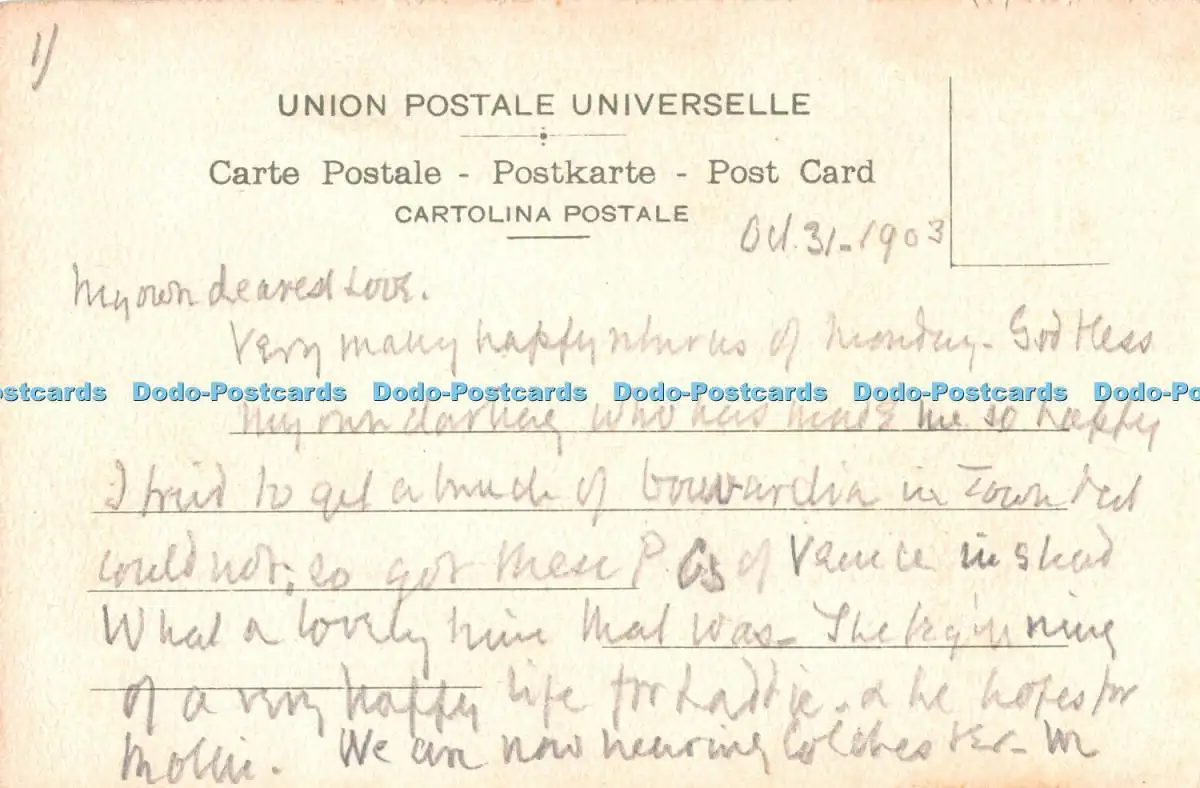 1/
UNION POSTALE UNIVERSELLE
Carte Postale - Postkarte - Post Card
CARTOLINA POSTALE
Oct. 31-1903
My own dearest Love.
Very many happy returns of Monday- God bless
Dodo-Postcards Dodo-Postcards Dodo-Postcards Dodo-Postcards Dodo-Postcards
my own darling who has made me so happy
I tried to get a bunch of bouvardia in Town but
could not; so got these P. Cs of Venice instead
What a lovely time that was- The beginning
of a very happy life for Laddie. & he hopes for
Mollie. We are now nearing Colchester-